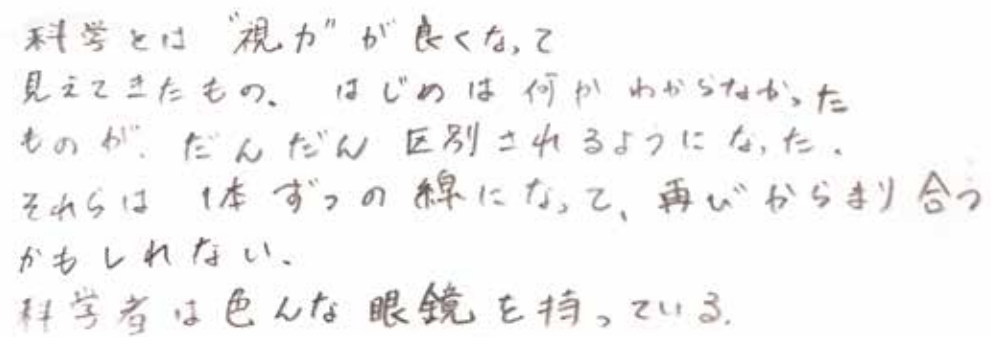 科学とは "視力" が良くなって
見えてきたもの、はじめは何かわからなかった
ものが、だんだん区別されるようになった。
それらは 1本ずつの線になって、再びからまり合う
かもしれない、
科学者は色んな眼鏡を持っている。